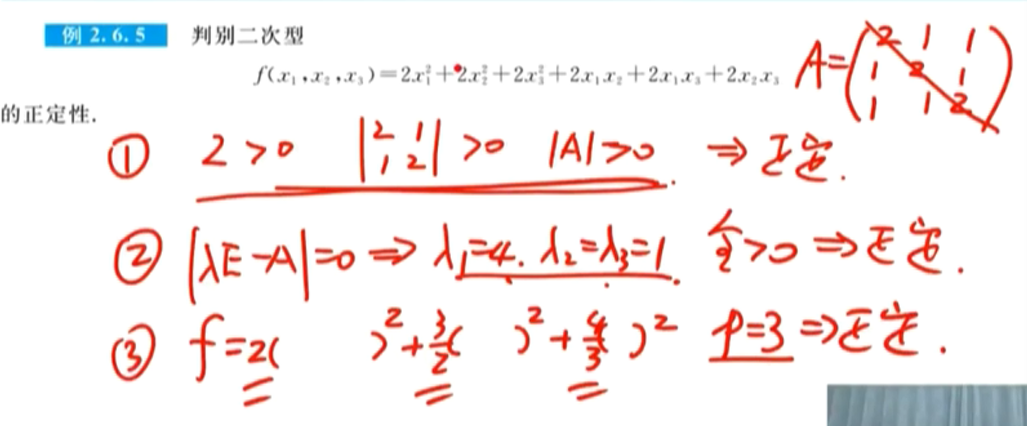 例 2.6.5 判别二次型
f(x₁,x₂,x₃)=2x₁²+2x₂²+2x₃²+2x₁x₂+2x₁x₃+2x₂x₃
的正定性.
A=(2 1 1
1 2 1
1 1 2)
① 2>0 |2 1
1 2|>0 |A|>0 ⇒正定.
② |λE-A|=0⇒λ₁=4. λ₂=λ₃=1. 全>0⇒正定.
③ f=2( )²+3/2( )²+4/3( )² p=3⇒正定.